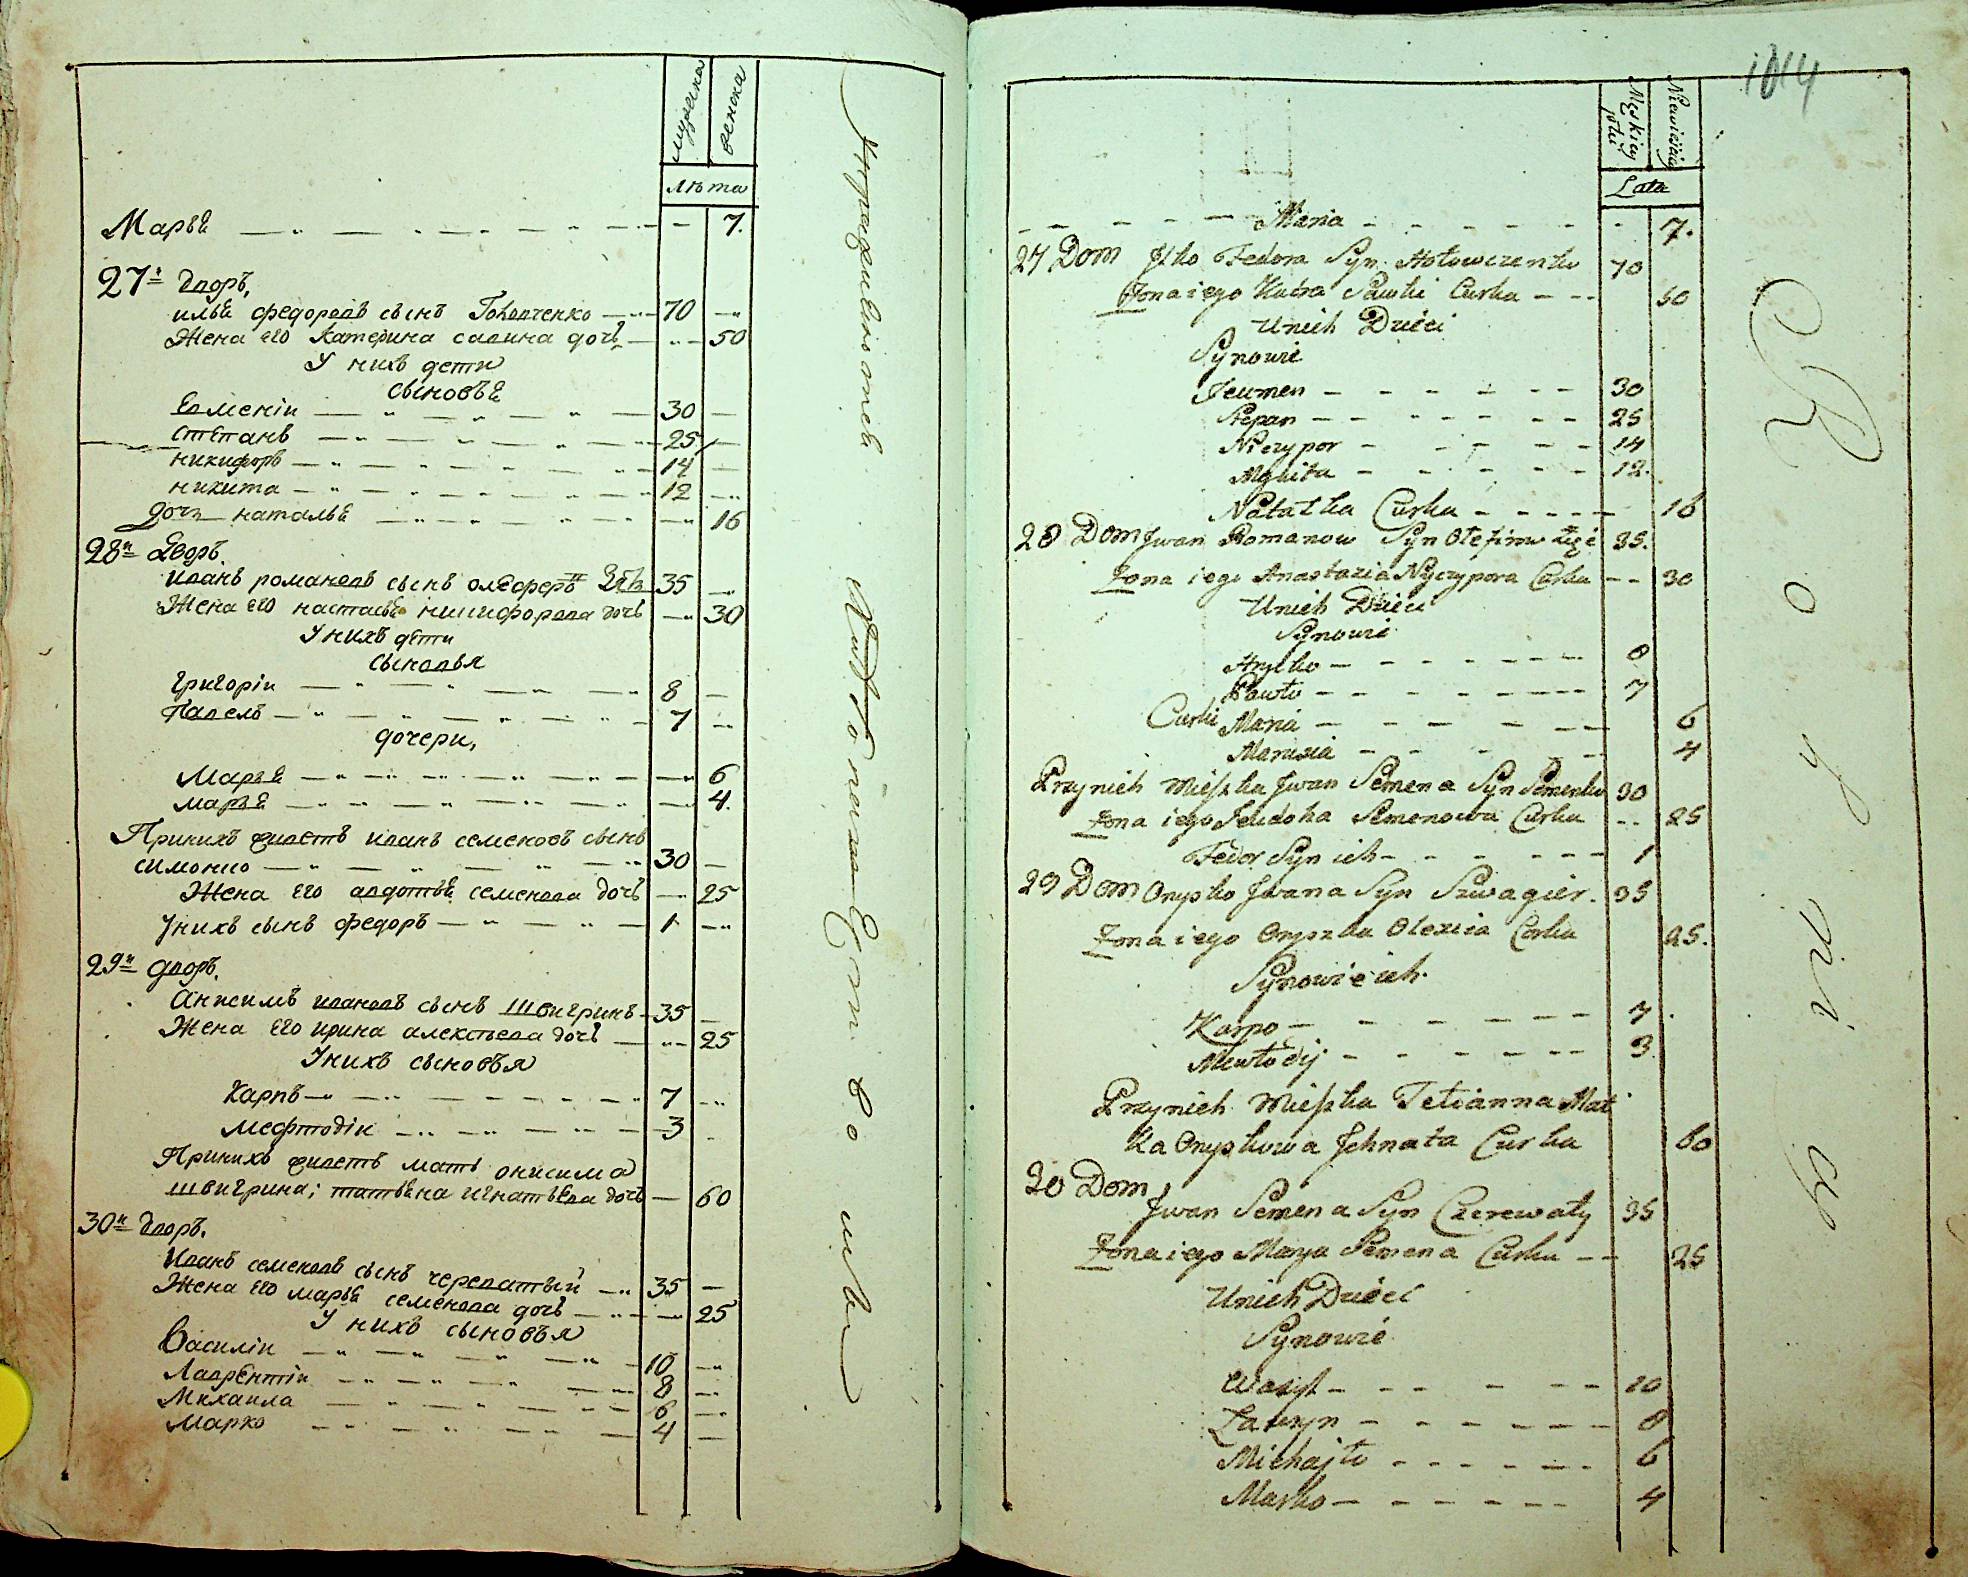 мужеска
женска
лѣта
Марья 7.
27й дворъ,
илья федоровъ сынъ Головченко 70
Жена его катерина савина дочь 50
У нихъ дети
сыновья
Евменіи 30
степанъ 25
никифоръ 14
никита 12
дочь наталья 16
28й дворъ.
иванъ романовъ сынъ олеферъ 35
Жена его настасья никифорова дочь 30
У нихъ дети
сыновья
григоріи 8
павелъ 7
дочери,
Марья 6
марья 4.
При нихъ живетъ иванъ семеновъ сынъ
симонно 30
Жена его авдотья семенова дочь 25
У нихъ сынъ федоръ 1
29й дворъ.
анисимъ ивановъ сынъ швигринъ 35
Жена его ирина алексеева дочь 25
У нихъ сыновья
карпъ 7
мефтодіи 3
При нихъ живетъ мать онисима
швигрина; татьяна игнатьева дочь 60
30й дворъ.
иванъ семеновъ сынъ череватый 35
Жена его марья семенова дочь 25
У нихъ сыновья
василіи 10
лаврентіи 8
михаила 6
марко 4
1014
Męskiey płci
Niewieściey
Lata
Maria 7.
27 Dom Jłko Fedora Syn Hołowczenko 70
Zona iego Katra Sawki Curka 50
Unich Dzieci
Synowie
Jeumen 30
Stepan 25
Niczypor 14
Mykita 12.
Natalka Curka 16
28 Dom Jwan Romanow Syn Olefirow Zięć 35.
Zona iego Anastazia Nyczypora Curka 30
Unich Dzieci
Synowie
Hryćko 8
Pawło 7
Curki Maria 6
Marusia 4
Przynich Mieszka Jwan Semena Syn Semenko 30
Zona iego Jeudoha Semenowa Curka 25
Fedor Syn ich 1
29 Dom Onysko Jwana Syn Szwagier. 35
Zona iego Oryszka Olexiia Curka 25.
Synowie ich.
Karpo 7.
Mewtodij 3
Przynich Mieszka Tetianna Mat
ka Onyskowa Jehnata Curka 60
30 Dom
Jwan Semena Syn Czerewaty 35
Zona iego Marya Semena Curka 25
Unich Dzieci
Synowie
Wasyl 10
Lawryn 8
Michajło 6
Marko 4